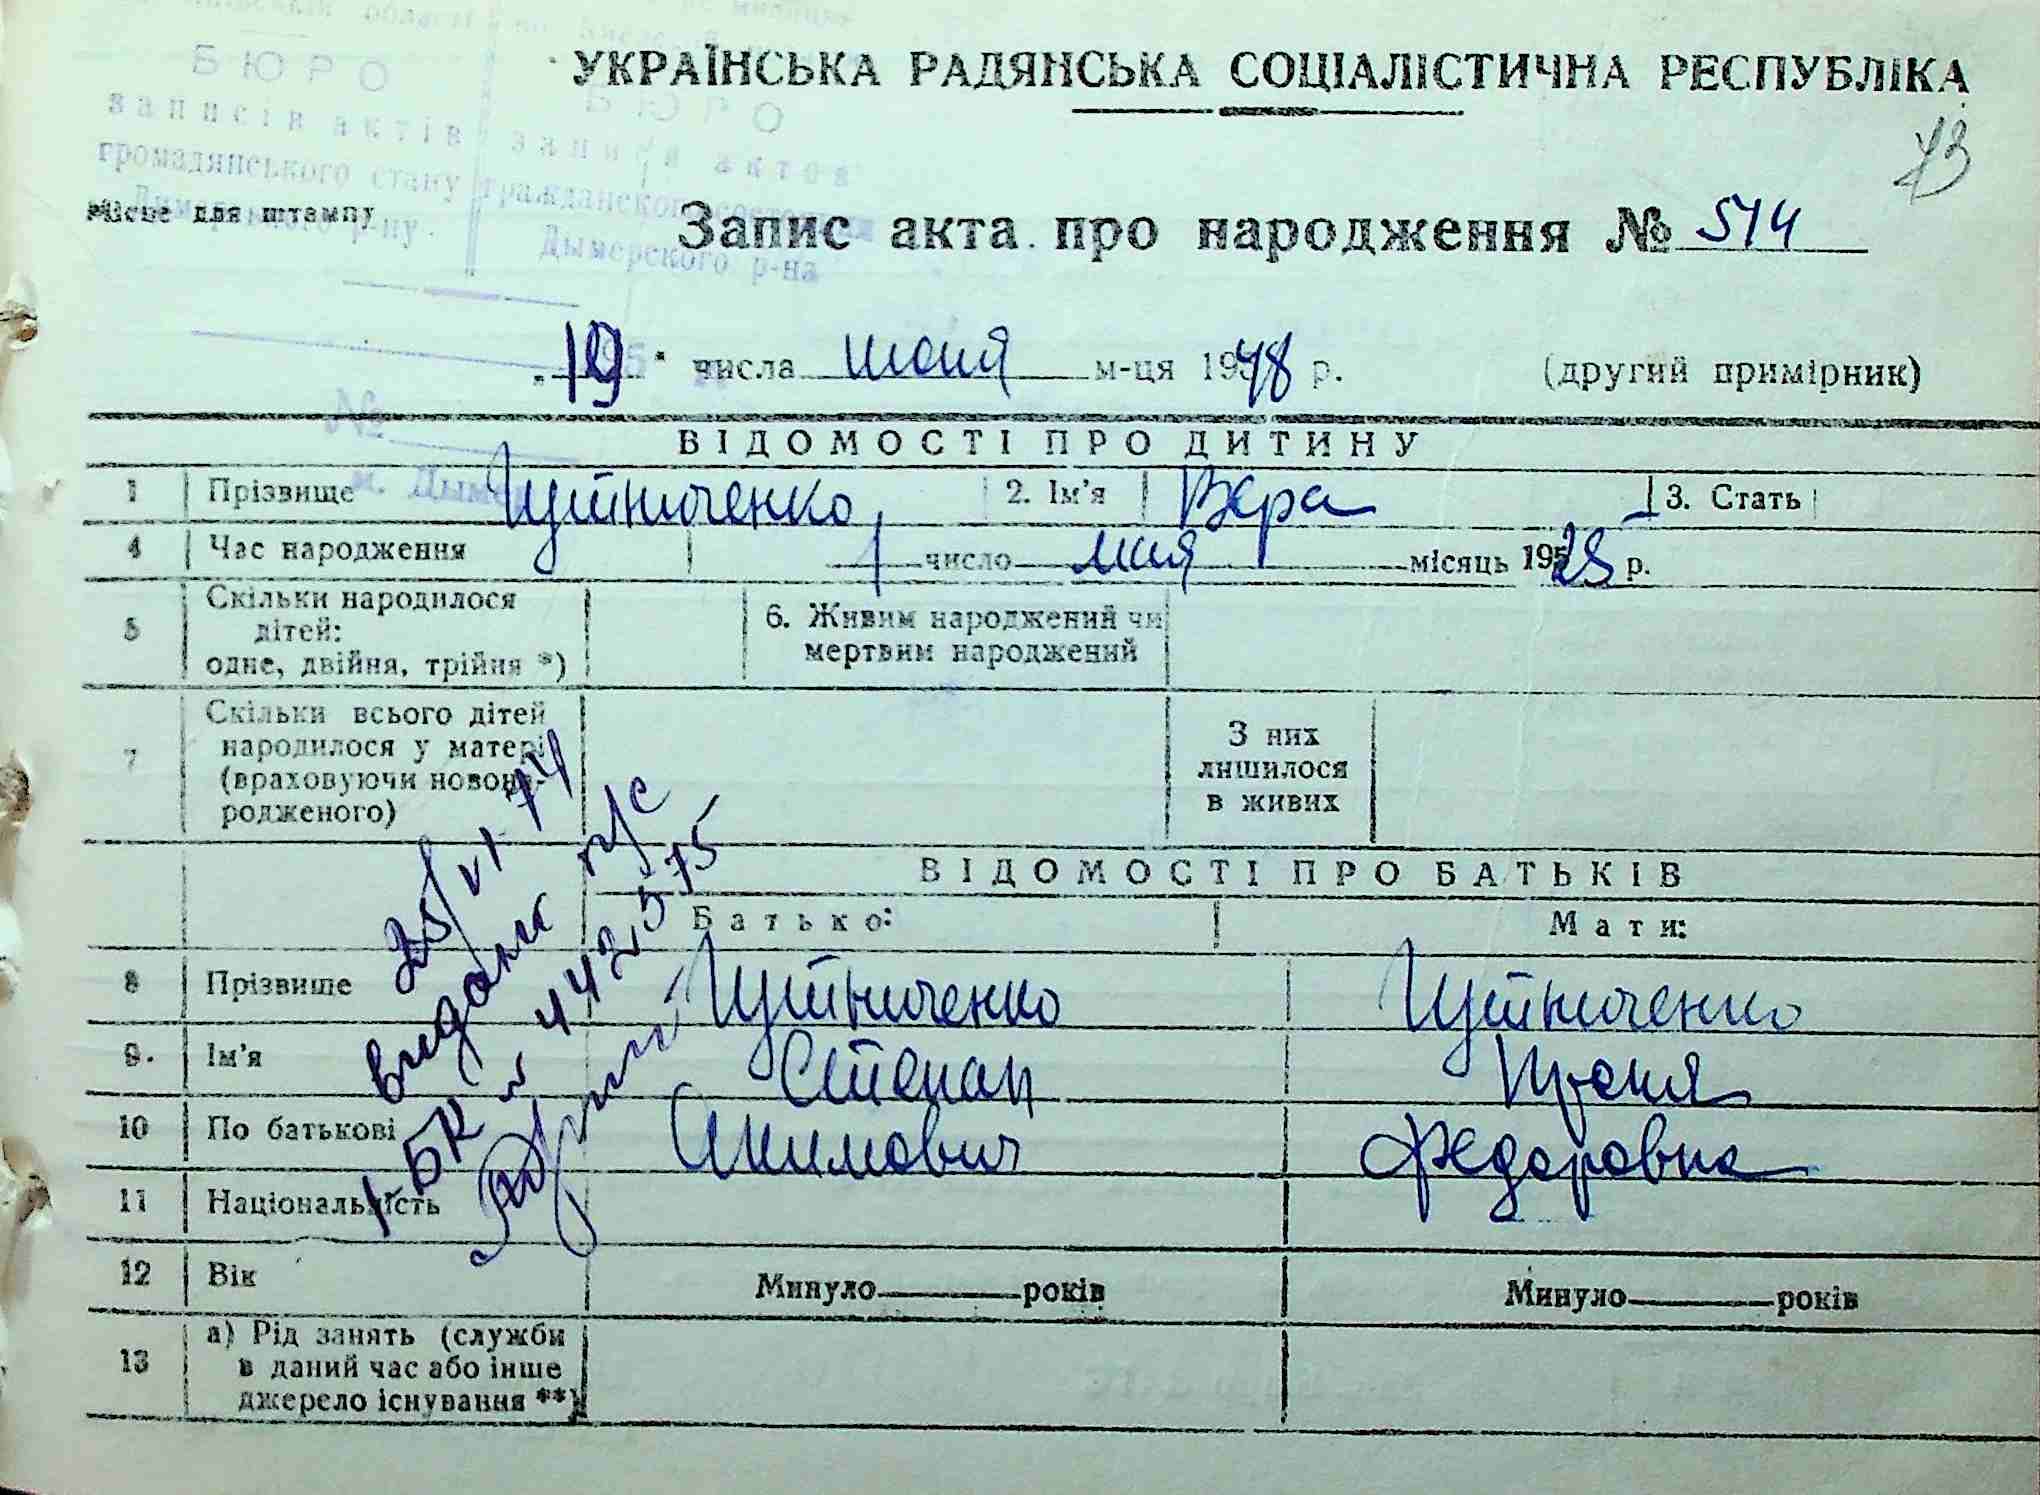 БЮРО
записів актів
громадянського стану
Димерського р-ну
БЮРО
записи актов
гражданского состояния
Дымерского р-на
УКРАЇНСЬКА РАДЯНСЬКА СОЦІАЛІСТИЧНА РЕСПУБЛІКА
73
Місце для штампу
Запис акта про народження № 514
„19" числа июня м-ця 1948 р. (другий примірник)
№
м. Дымер
ВІДОМОСТІ ПРО ДИТИНУ
1 Прізвище 2. Ім'я Вера 3. Стать
4 Час народження 1 число мая місяць 1928 р.
5 Скільки народилося дітей: одне, двійня, трійня *) 6. Живим народжений чи мертвим народжений
7 Скільки всього дітей народилося у матері (враховуючи новонародженого) З них лишилося в живих
ВІДОМОСТІ ПРО БАТЬКІВ
Батько: Мати:
8 Прізвище
9. Ім'я Степан
10 По батькові Акимович Федоровна
11 Національність
12 Вік Минуло років Минуло років
13 а) Рід занять (служби в даний час або інше джерело існування **)
25/VI-74
видано п/с
1-БК № 442575